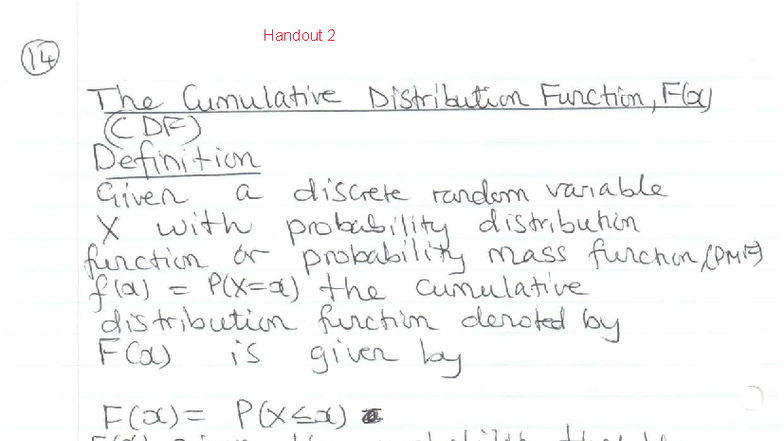 Handout 2
14
The Cumulative Distribution Function, F(x)
(CDF)
Definition
Given a discrete random variable
X with probability distribution
function or probability mass function, (PMF)
f(x) = P(X=x) the cumulative
distribution function denoted by
F(x) is given by
F(x) = P(X≤x)